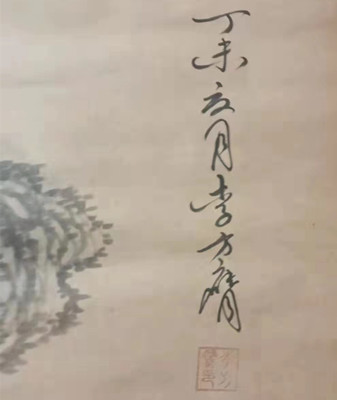 丁未亥月李方膺